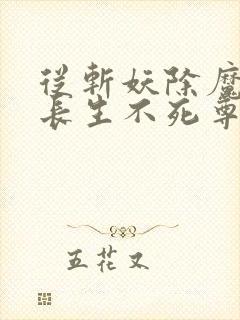 從斬妖除魔
長生不死尊
五花又